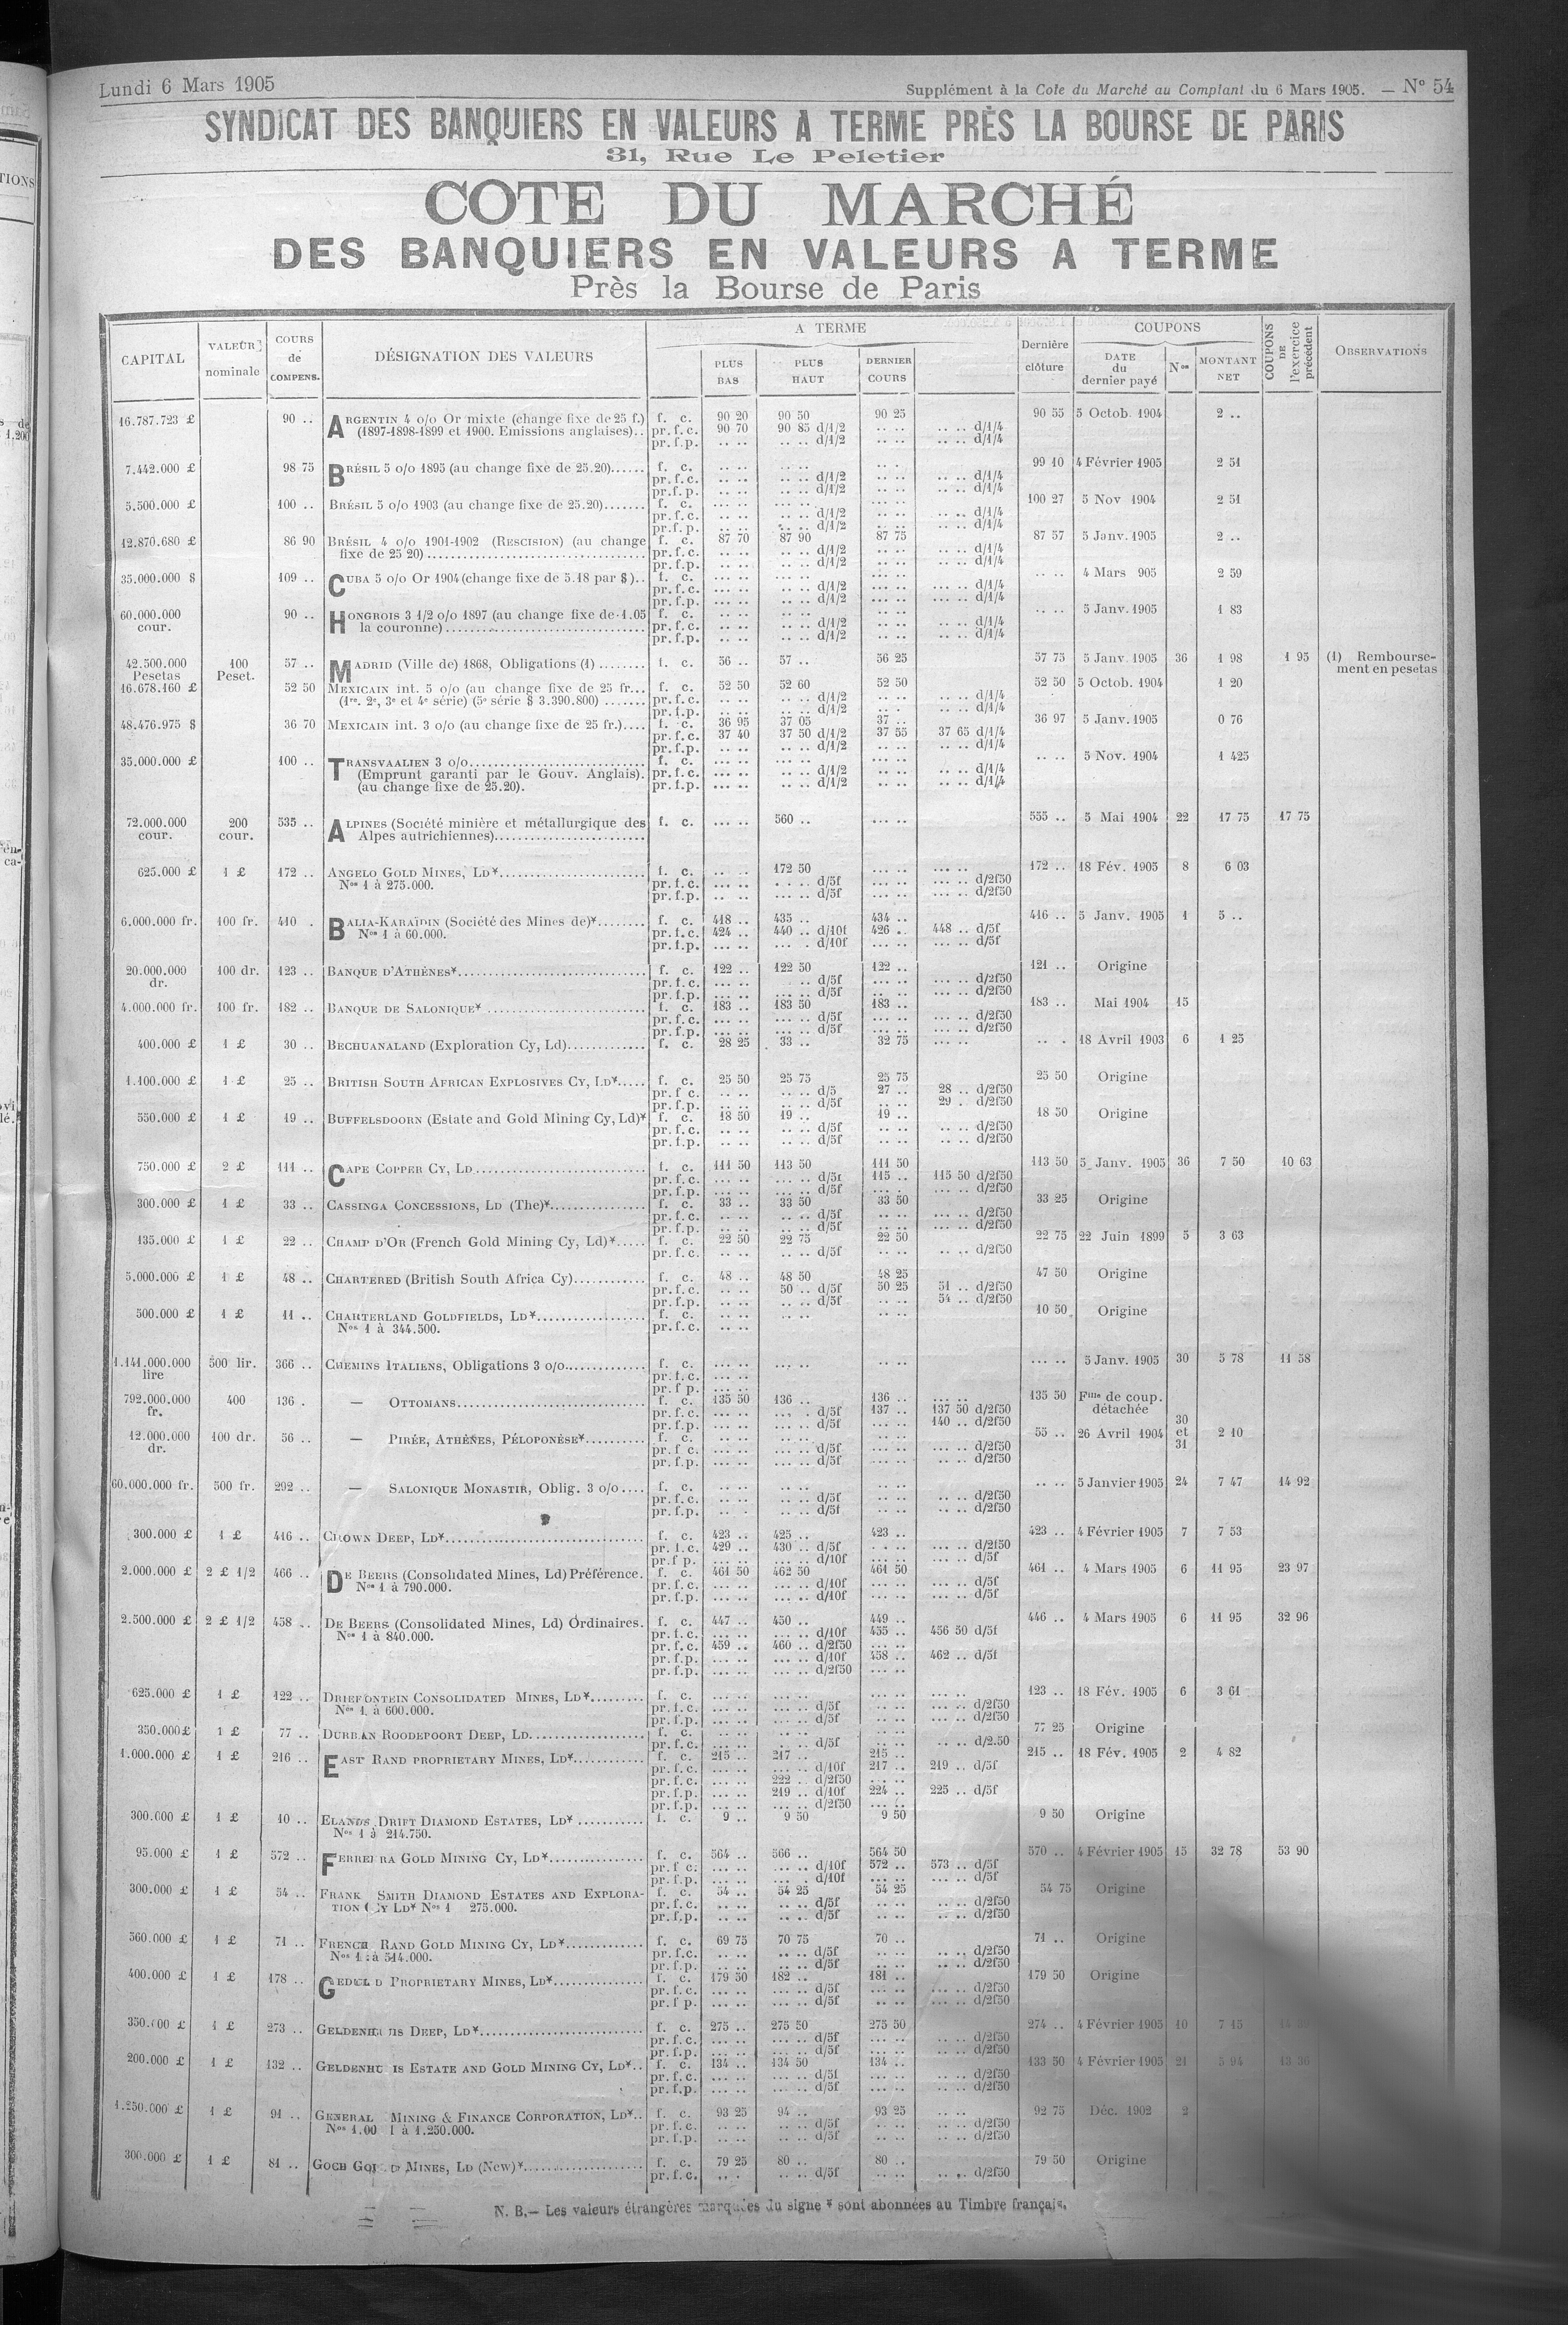 Lundi 6 Mars 1905
Supplément à la Cote du Marché au Comptant du 6 Mars 1905. — N° 54
SYNDICAT DES BANQUIERS EN VALEURS A TERME PRÈS LA BOURSE DE PARIS
31, Rue Le Peletier
COTE DU MARCHÉ
DES BANQUIERS EN VALEURS A TERME
Près la Bourse de Paris
CAPITAL | VALEUR nominale | COURS de COMPENS. | DÉSIGNATION DES VALEURS | A TERME | PLUS BAS | PLUS HAUT | DERNIER COURS | Dernière clôture | COUPONS | DATE du dernier payé | Nos | MONTANT NET | COUPONS DE l'exercice précédent | OBSERVATIONS
16.787.723 £ 90 .. ARGENTIN 4 o/o Or mixte (change fixe de 25 f.) f. c. 90 20 90 50 90 25 90 55 5 Octob. 1904 2 ..
(1897-1898-1899 et 1900. Emissions anglaises).. pr. f. c. 90 70 90 85 d/1/2 .. .. .. .. d/1/4
pr. f.p. .. .. .. .. d/1/2 .. .. .. .. d/1/4
7.442.000 £ 98 75 BRÉSIL 5 o/o 1895 (au change fixe de 25.20)...... f. c. .. .. .. .. 99 10 4 Février 1905 2 51
pr. f. c. .. .. .. .. d/1/2 .. .. .. .. d/1/4
pr. f.p. .. .. .. .. d/1/2 .. .. .. .. d/1/4
5.500.000 £ 100 .. BRÉSIL 5 o/o 1903 (au change fixe de 25.20)....... f. c. 100 27 5 Nov 1904 2 51
pr. f. c. .. .. .. .. d/1/2 .. .. .. .. d/1/4
pr. f.p. .. .. .. .. d/1/2 .. .. .. .. d/1/4
12.870.680 £ 86 90 BRÉSIL 4 o/o 1901-1902 (RESCISION) (au change f. c. 87 70 87 90 87 75 87 57 5 Janv. 1905 2 ..
fixe de 25 20)........ pr. f. c. .. .. .. .. d/1/2 .. .. .. .. d/1/4
pr. f.p. .. .. .. .. d/1/2 .. .. .. .. d/1/4
35.000.000 $ 109 .. CUBA 5 o/o Or 1904 (change fixe de 5.18 par $).. f. c. .. .. 4 Mars 905 2 59
pr. f. c. ... .. .. .. d/1/2 .. .. ... .. d/1/4
pr. f.p. ... .. .. .. d/1/2 .. .. ... .. d/1/4
60.000.000 cour. 90 .. HONGROIS 3 1/2 o/o 1897 (au change fixe de 1.05 f. c. .. .. 5 Janv. 1905 1 83
la couronne)........ pr. f. c. .. .. .. .. d/1/2 .. .. .. .. d/1/4
pr. f.p. .. .. .. .. d/1/2 .. .. .. .. d/1/4
42.500.000 Pesetas 100 Peset. 57 .. MADRID (Ville de) 1868, Obligations (1) ........ f. c. 56 .. 57 .. 56 25 57 75 5 Janv. 1905 36 1 98 1 95 (1) Remboursement en pesetas
16.678.160 £ 52 50 MEXICAIN int. 5 o/o (au change fixe de 25 fr... f. c. 52 50 52 60 52 50 52 50 5 Octob. 1904 1 20
(1re. 2e, 3e et 4e série) (5e série $ 3.390.800) ....... pr. f. c. .. .. .. .. d/1/2 .. .. .. .. d/1/4
pr. f.p. .. .. .. .. d/1/2 .. .. .. .. d/1/4
48.476.975 $ 36 70 MEXICAIN int. 3 o/o (au change fixe de 25 fr.).... f. c. 36 95 37 05 37 .. 36 97 5 Janv. 1905 0 76
pr. f. c. 37 40 37 50 d/1/2 37 55 37 65 d/1/4
pr. f.p. .. .. .. .. d/1/2 .. .. .. .. d/1/4
35.000.000 £ 100 .. TRANSVAALIEN 3 o/o........ f. c. .. .. 5 Nov. 1904 1 425
(Emprunt garanti par le Gouv. Anglais). pr. f. c. ... .. .. .. d/1/2 .. .. .. .. d/1/4
(au change fixe de 25.20). pr. f.p. ... .. .. .. d/1/2 .. .. .. .. d/1/4
72.000.000 cour. 200 cour. 535 .. ALPINES (Société minière et métallurgique des f. c. ... .. 560 .. ... .. 555 .. 5 Mai 1904 22 17 75 17 75
Alpes autrichiennes)........
625.000 £ 1 £ 172 .. ANGELO GOLD MINES, LD*........ f. c. 172 50 172 .. 18 Fév. 1905 8 6 03
Nos 1 à 275.000. pr. f. c. ... .. d/5f ... .. d/2f50
pr. f.p. ... .. d/5f ... .. d/2f50
6.000.000 fr. 100 fr. 410 . BALIA-KARAÏDIN (Société des Mines de)*........ f. c. 418 .. 435 .. 434 .. 416 .. 5 Janv. 1905 1 5 ..
Nos 1 à 60.000. pr. f. c. 424 .. 440 .. d/10f 426 .. 448 .. d/5f
pr. f.p. ... .. d/10f ... .. d/5f
20.000.000 dr. 100 dr. 123 .. BANQUE D'ATHÈNES*........ f. c. 122 .. 122 50 122 .. 121 .. Origine
pr. f. c. ... .. d/5f ... .. d/2f50
pr. f.p. ... .. d/5f ... .. d/2f50
4.000.000 fr. 100 fr. 182 .. BANQUE DE SALONIQUE* ........ f. c. 183 .. 183 50 183 .. 183 .. Mai 1904 15
pr. f. c. ... .. d/5f ... .. d/2f50
pr. f.p. ... .. d/5f ... .. d/2f50
400.000 £ 1 £ 30 .. BECHUANALAND (Exploration Cy, Ld)........ f. c. 28 25 33 .. 32 75 18 Avril 1903 6 1 25
1.100.000 £ 1 £ 25 .. BRITISH SOUTH AFRICAN EXPLOSIVES CY, LD*..... f. c. 25 50 25 75 25 75 25 50 Origine
pr. f c. .. .. .. .. d/5 27 .. 28 .. d/2f50
pr. f.p. .. .. .. .. d/5f .. .. 29 . d/2f50
550.000 £ 1 £ 19 .. BUFFELSDOORN (Estate and Gold Mining Cy, Ld)* f. c. 18 50 19 .. 19 .. 18 50 Origine
pr. f. c. .. .. .. .. d/5f .. .. .. .. d/2f50
pr. f.p. .. .. .. .. d/5f .. .. .. .. d/2f50
750.000 £ 2 £ 111 .. CAPE COPPER CY, LD........ f. c. 111 50 113 50 111 50 113 50 5 Janv. 1905 36 7 50 10 63
pr. f. c. ... .. d/5f 115 .. 115 50 d/2f50
pr. f.p. ... .. d/5f ... .. d/2f50
300.000 £ 1 £ 33 .. CASSINGA CONCESSIONS, LD (The)*........ f. c. 33 .. 33 50 33 50 33 25 Origine
pr. f. c. .. .. d/5f ... .. d/2f50
pr. f.p. .. .. d/5f ... .. d/2f50
135.000 £ 1 £ 22 .. CHAMP D'OR (French Gold Mining Cy, Ld)*..... f. c. 22 50 22 75 22 50 22 75 22 Juin 1899 5 3 63
pr. f. c. .. .. .. .. d/5f .. .. .. .. d/2f50
5.000.000 £ 1 £ 48 .. CHARTERED (British South Africa Cy)........ f. c. 48 .. 48 50 48 25 47 50 Origine
pr. f. c. .. .. 50 .. d/5f 50 25 51 .. d/2f50
pr. f.p. .. .. .. .. d/5f .. .. 54 .. d/2f50
500.000 £ 1 £ 11 .. CHARTERLAND GOLDFIELDS, LD*........ f. c. .. .. 10 50 Origine
Nos 1 à 344.500. pr. f. c. .. ..
1.141.000.000 lire 500 lir. 366 .. CHEMINS ITALIENS, Obligations 3 o/o........ f. c. ... .. 5 Janv. 1905 30 5 78 11 58
pr. f. c. ... ..
pr. f p. ... ..
792.000.000 fr. 400 136 . — OTTOMANS........ f. c. 135 50 136 .. 136 .. 135 50 Fille de coup. détachée
pr. f. c. ... .. d/5f 137 .. 137 50 d/2f50
pr. f.p. ... .. d/5f ... .. 140 .. d/2f50
12.000.000 dr. 100 dr. 56 .. — PIRÉE, ATHÈNES, PÉLOPONÈSE*........ f. c. 55 .. 26 Avril 1904 30 et 31 2 10
pr. f c. ... .. d/5f ... .. d/2f50
pr. f.p. ... .. d/5f .. .. d/2f50
60.000.000 fr. 500 fr. 292 .. — SALONIQUE MONASTIR, Oblig. 3 o/o.... f. c. .. .. 5 Janvier 1905 24 7 47 14 92
pr. f. c. .. .. d/5f .. .. d/2f50
pr. f.p. .. .. d/5f .. .. d/2f50
300.000 £ 1 £ 416 .. CROWN DEEP, LD*........ f. c. 423 .. 425 .. 423 .. 423 .. 4 Février 1905 7 7 53
pr. f. c. 429 .. 430 .. d/5f ... .. d/2f50
pr. f p. ... .. d/10f ... .. d/5f
2.000.000 £ 2 £ 1/2 466 .. DE BEERS (Consolidated Mines, Ld) Préférence. f. c. 461 50 462 50 461 50 461 .. 4 Mars 1905 6 11 95 23 97
Nos 1 à 790.000. pr. f. c. ... .. d/10f ... .. d/5f
pr. f.p. ... .. d/10f ... .. d/5f
2.500.000 £ 2 £ 1/2 458 .. DE BEERS (Consolidated Mines, Ld) Ordinaires. f. c. 447 .. 450 .. 449 .. 446 .. 4 Mars 1905 6 11 95 32 96
Nos 1 à 840.000. pr. f. c. ... .. d/10f 455 .. 456 50 d/5f
pr. f. c. 459 .. 460 .. d/2f50 ... ..
pr. f.p. ... .. d/10f 458 .. 462 .. d/5f
pr. f.p. ... .. d/2f50 ... ..
625.000 £ 1 £ 122 .. DRIEFONTEIN CONSOLIDATED MINES, LD*........ f. c. 123 .. 18 Fév. 1905 6 3 61
Nos 1 à 600.000. pr. f. c. ... .. d/5f .. .. d/2f50
pr. f.p. ... .. d/5f .. .. d/2f50
350.000 £ 1 £ 77 .. DURBAN ROODEPOORT DEEP, LD........ f. c. 77 25 Origine
pr. f. c. .. .. d/5f .. .. d/2.50
1.000.000 £ 1 £ 216 .. EAST RAND PROPRIETARY MINES, LD*........ f. c. 215 .. 217 .. 215 .. 215 .. 18 Fév. 1905 2 4 82
pr. f. c. ... .. d/10f 217 .. 219 .. d/5f
pr. f. c. ... .. 222 .. d/2f50 ... ..
pr. f.p. ... .. 219 .. d/10f 224 .. 225 .. d/5f
pr. f.p. ... .. d/2f50 ... ..
300.000 £ 1 £ 10 .. ELANDS DRIFT DIAMOND ESTATES, LD* ........ f. c. 9 .. 9 50 9 50 9 50 Origine
Nos 1 à 214.750.
95.000 £ 1 £ 572 .. FERREIRA GOLD MINING CY, LD*........ f. c. 564 .. 566 .. 564 50 570 .. 4 Février 1905 15 32 78 53 90
pr. f c. ... .. d/10f 572 .. 573 .. d/5f
pr. f.p. ... .. d/10f ... .. d/5f
300.000 £ 1 £ 54 .. FRANK SMITH DIAMOND ESTATES AND EXPLORA- f. c. 54 .. 54 25 54 25 54 75 Origine
TION CY LD* Nos 1 275.000. pr. f. c. .. .. d/5f .. .. d/2f50
pr. f.p. .. .. d/5f .. .. d/2f50
560.000 £ 1 £ 71 .. FRENCH RAND GOLD MINING CY, LD*........ f. c. 69 75 70 75 70 .. 71 .. Origine
Nos 1 à 514.000. pr. f.c. .. .. d/5f .. .. d/2f50
pr. f.p. .. .. d/5f .. .. d/2f50
400.000 £ 1 £ 178 .. GEDULD PROPRIETARY MINES, LD*........ f. c. 179 50 182 .. 181 .. 179 50 Origine
pr. f. c. ... .. d/5f ... .. d/2f50
pr. f p. ... .. d/5f ... .. d/2f50
350.000 £ 1 £ 273 .. GELDENHUIS DEEP, LD*........ f. c. 275 .. 275 50 275 50 274 .. 4 Février 1905 10 7 15
pr. f. c. ... .. d/5f .. .. d/2f50
pr. f.p. ... .. d/5f .. .. d/2f50
200.000 £ 1 £ 132 .. GELDENHUIS ESTATE AND GOLD MINING CY, LD*.. f. c. 134 .. 134 50 134 .. 133 50 4 Février 1905 21 5 94 13 36
pr. f. c. ... .. d/5f .. .. d/2f50
pr. f.p. ... .. d/5f .. .. d/2f50
1.250.000 £ 1 £ 91 .. GENERAL MINING & FINANCE CORPORATION, LD*.. f. c. 93 25 94 .. 93 25 92 75 Déc. 1902 2
Nos 1.00 1 à 1.250.000. pr. f. c. .. .. d/5f .. .. d/2f50
pr. f.p. .. .. d/5f .. .. d/2f50
300.000 £ 1 £ 81 .. GOCH GOLD MINES, LD (New)*........ f. c. 79 25 80 .. 80 .. 79 50 Origine
pr. f. c. .. . .. .. d/5f .. .. .. .. d/2f50
N. B.— Les valeurs étrangères marquées du signe * sont abonnées au Timbre français.